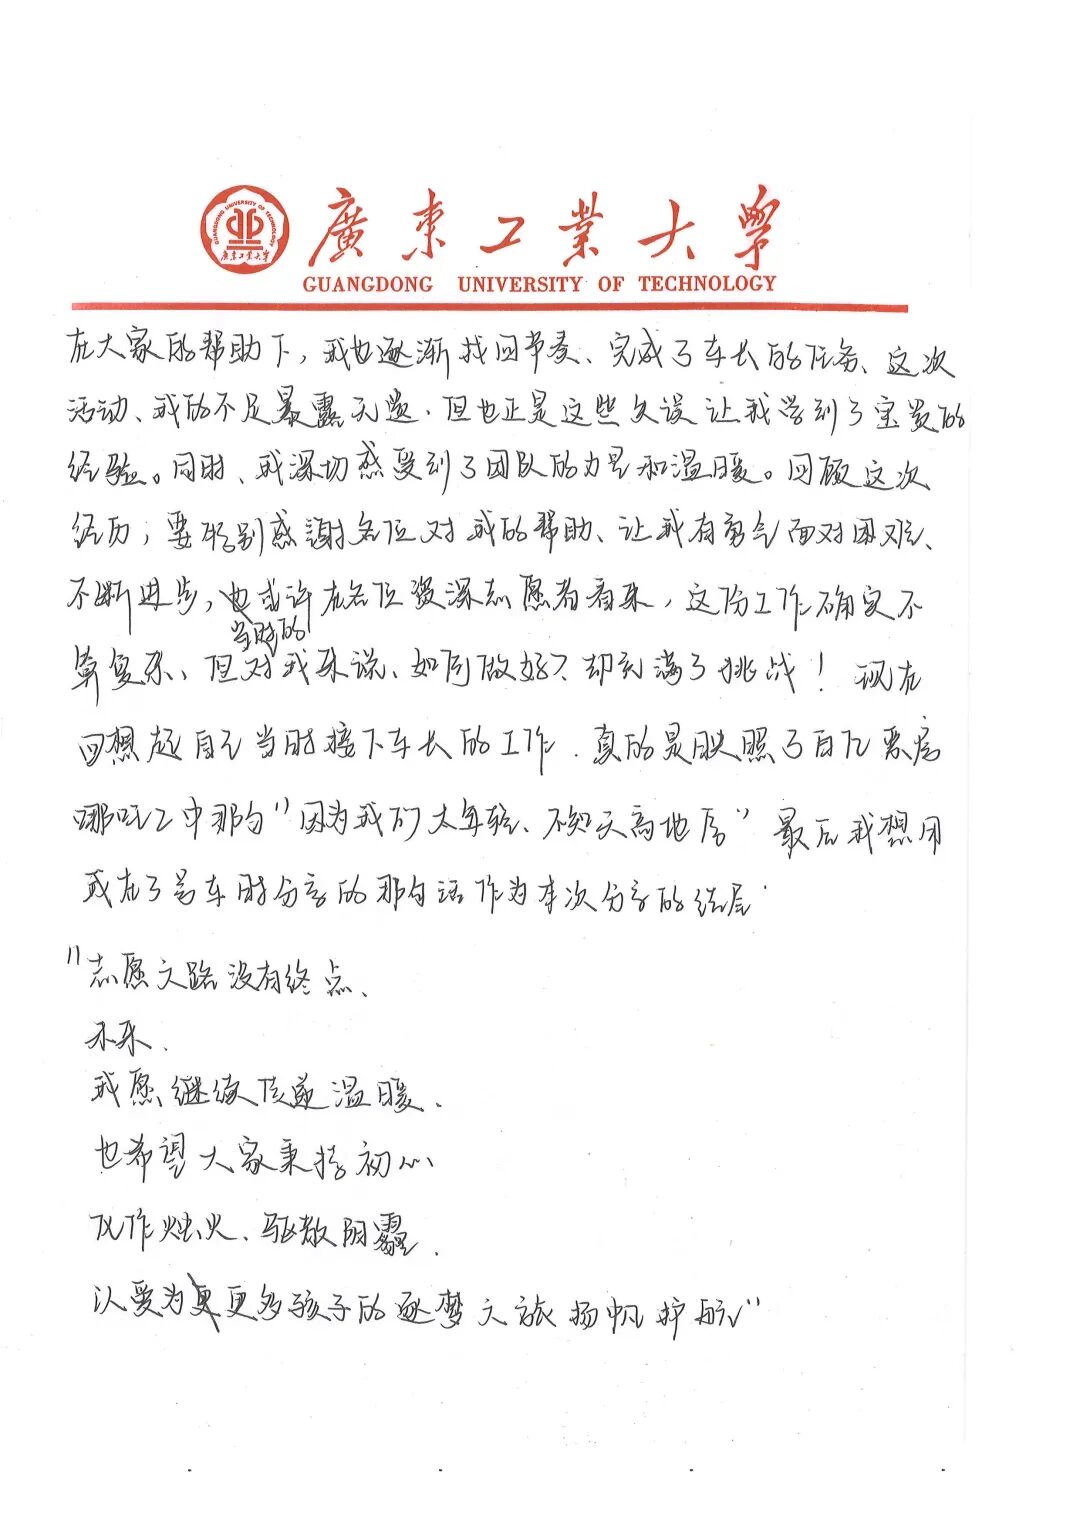 廣東工業大學
GUANGDONG UNIVERSITY OF TECHNOLOGY
在大家的帮助下，我也逐渐找回节奏、完成了车长的任务、这次
活动、我的不足暴露无遗，但也正是这些欠误让我学到了宝贵的
经验。同时、我深切感受到了团队的力量和温暖。回顾这次
经历，要特别感謝各位对我的帮助、让我有勇气面对困难、
不断进步，或许在各位资深志愿者看来，这份工作确实不
当时的
算复杂、但对我来说、如何做好、却充满了挑战！现在
回想起自己当时接下车长的工作，真的是映照了自九
哪吒2中那句“因为我们太年轻、不知天高地厚”最后我想用
我在3号车时分享的那句话作为本次分享的结尾
“志愿之路没有终点、
未来、
我愿继续传递温暖、
也希望大家秉持初心
化作烛火、驱散阴霾、
以爱为更多孩子的逐梦之旅扬帆护航”